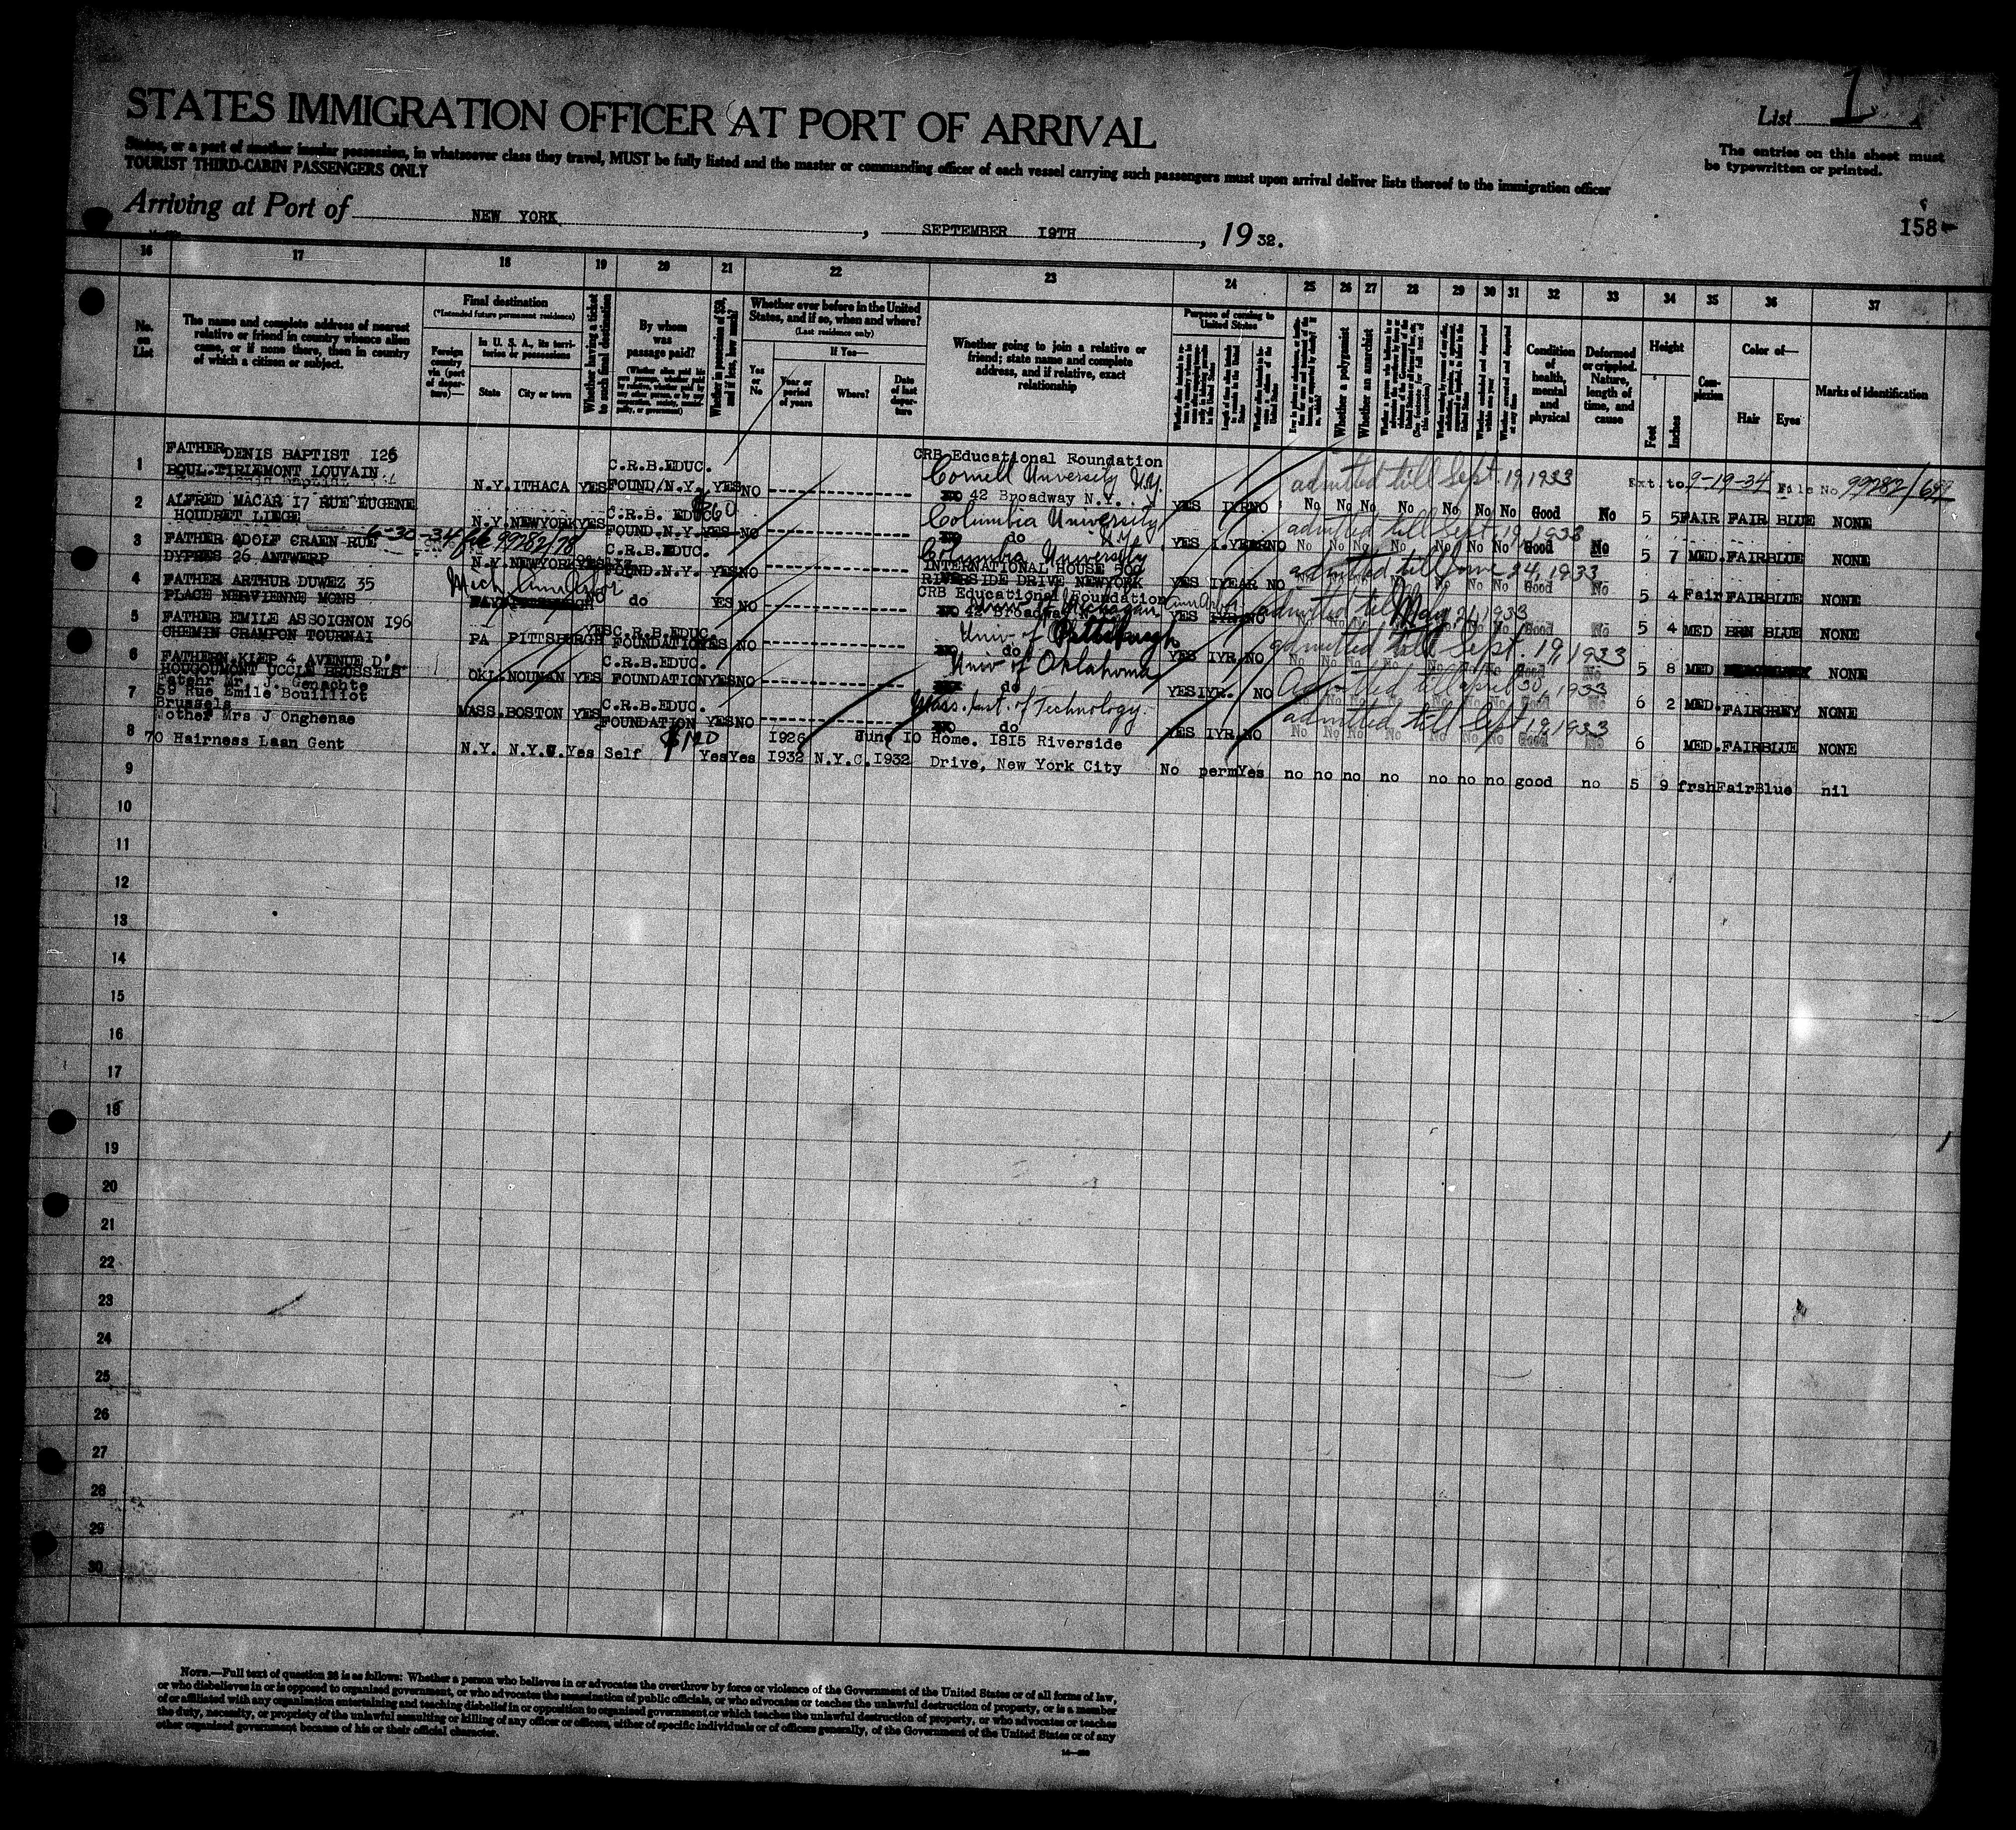 STATES IMMIGRATION OFFICER AT PORT OF ARRIVAL
List 1
States, or a part of another insular possession, in whatsoever class they travel, MUST be fully listed and the master or commanding officer of each vessel carrying such passengers must upon arrival deliver lists thereof to the immigration officer
TOURIST THIRD-CABIN PASSENGERS ONLY
The entries on this sheet must
be typewritten or printed.
Arriving at Port of NEW YORK, SEPTEMBER 19TH, 1932.
158
16 17 18 19 20 21 22 23 24 25 26 27 28 29 30 31 32 33 34 35 36 37
No. on List
The name and complete address of nearest
relative or friend in country whence alien
came, or if none there, then in country
of which a citizen or subject.
Final destination
(*Intended future permanent residence)
Foreign country via (port of departure)—
In U. S. A., its territories or possessions
State City or town
Whether having a ticket to such final destination
By whom was passage paid?
Whether in possession of $50, and if less, how much?
Whether ever before in the United States, and if so, when and where?
(Last residence only)
Yes or No
If Yes—
Year or period of years
Where?
Date of last departure
Whether going to join a relative or
friend; state name and complete
address, and if relative, exact
relationship
Purpose of coming to United States
Whether a polygamist
Whether an anarchist
Condition of health, mental and physical
Deformed or crippled. Nature, length of time, and cause
Height
Feet Inches
Complexion
Color of—
Hair Eyes
Marks of identification
1 FATHER DENIS BAPTIST 126
BOUL. TIRLEMONT LOUVAIN
N.Y. ITHACA YES C.R.B.EDUC. FOUND/N.Y. YES NO
CRB Educational Foundation
Cornell University N.Y.
42 Broadway N.Y.
YES 1YR NO
admitted till Sept. 19, 1933
Ext. to 9-19-34 File No 99282/
No No No No No No No Good No 5 5 FAIR FAIR BLUE NONE
2 ALFRED MACAR 17 RUE EUGENE
HOUDRET LIEGE
N.Y. NEWYORK YES C.R.B. EDUC FOUND.N.Y. YES NO
$360
Columbia University
do
YES 1.YEAR NO
admitted till Sept. 19, 1933
No No No No No No No Good No 5 7 MED. FAIR BLUE NONE
6-30-34 file 99782/78
3 FATHER ADOLF CRAEN RUE
DYPRES 26 ANTWERP
N.Y. NEWYORK YES C.R.B.EDUC. FOUND.N.Y. YES NO
Columbia University
INTERNATIONAL HOUSE 500
RIVERSIDE DRIVE NEWYORK
YES 1YEAR NO
admitted till June 24, 1933
Good No 5 4 Fair FAIR BLUE NONE
4 FATHER ARTHUR DUWEZ 35
PLACE NERVIENNE MONS
Mich. Ann Arbor
NO do YES NO
CRB Educational Foundation
42 Broadway
Michagan Ann Arbor
YES 1YR NO
admitted till May 21, 1933
Good No 5 4 MED BRN BLUE NONE
5 FATHER EMILE ASSOIGNON 196
CHEMIN CRAMPON TOURNAI
PA PITTSBURGH YES C.R.B.EDUC. FOUNDATION YES NO
Univ of Pittsburgh
do
YES 1YR. NO
admitted till Sept. 19, 1933
Good No 5 8 MED NONE
6 FATHER N.KLEP 4 AVENUE D'
HOUGOUMONT UCCLE BRUSSELS
OKL. NOUMAN YES C.R.B.EDUC. FOUNDATION YES NO
Univ of Oklahoma
do
YES 1YR. NO
Admitted till april 30, 1933
Good No 6 2 MED. FAIR GREY NONE
7 Fatehr Mr. J. Genachte
59 Rue Emile Bouilliot
Brussels
MASS. BOSTON YES C.R.B.EDUC. FOUNDATION YES NO
Mass. Inst. of Technology.
do
YES 1YR. NO
admitted till Sept 19, 1933
No No No No No No No Good No 6 MED. FAIR BLUE NONE
8 Mother Mrs J Onghenae
70 Hairness Laan Gent
N.Y. N.Y.C. Yes Self $120 Yes Yes 1926 1932 N.Y.C. June 10 1932
Home. 1815 Riverside
Drive, New York City
No perm Yes no no no no no no no good no 5 9 frsh Fair Blue nil
9
10
11
12
13
14
15
16
17
18
19
20
21
22
23
24
25
26
27
28
29
30
NOTE.—Full text of question 28 is as follows: Whether a person who believes in or advocates the overthrow by force or violence of the Government of the United States or of all forms of law,
or who disbelieves in or is opposed to organized government, or who advocates the assassination of public officials, or who advocates or teaches the unlawful destruction of property, or is a member
of or affiliated with any organization entertaining and teaching disbelief in or opposition to organized government or which teaches the unlawful destruction of property, or who advocates or teaches
the duty, necessity, or propriety of the unlawful assaulting or killing of any officer or officers, either of specific individuals or of officers generally, of the Government of the United States or of any
other organized government because of his or their official character.